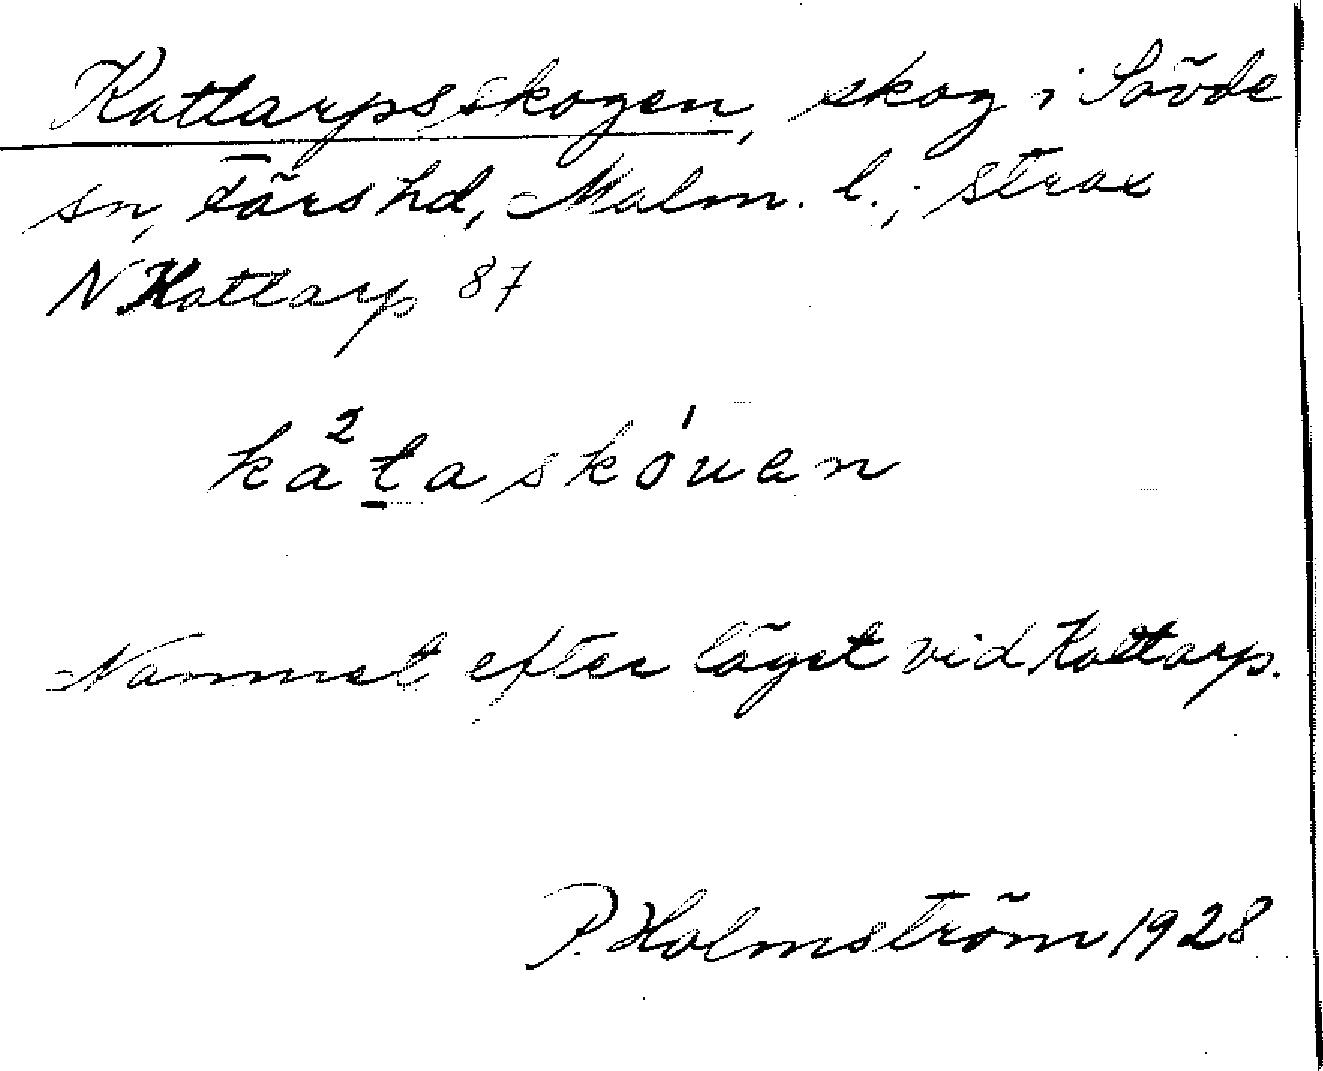 Kattarpsskogen, skog i Sövde
sn, Färs hd, Malm. l.; strax
N Kattarp 87
ka²t̲askóuan
Namnet efter läget vid Kattarp.
P. Holmström 1928